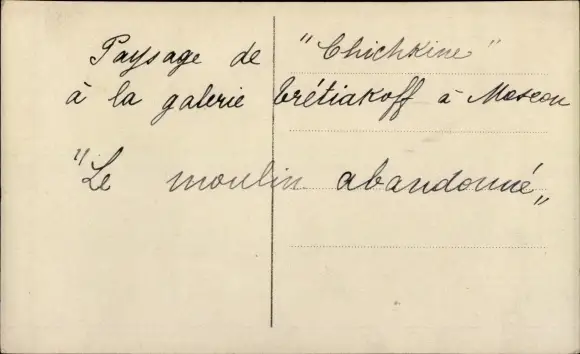 Paysage de "Chichkine"
à la galerie Trétiakoff à Moscou
"Le moulin abandonné„